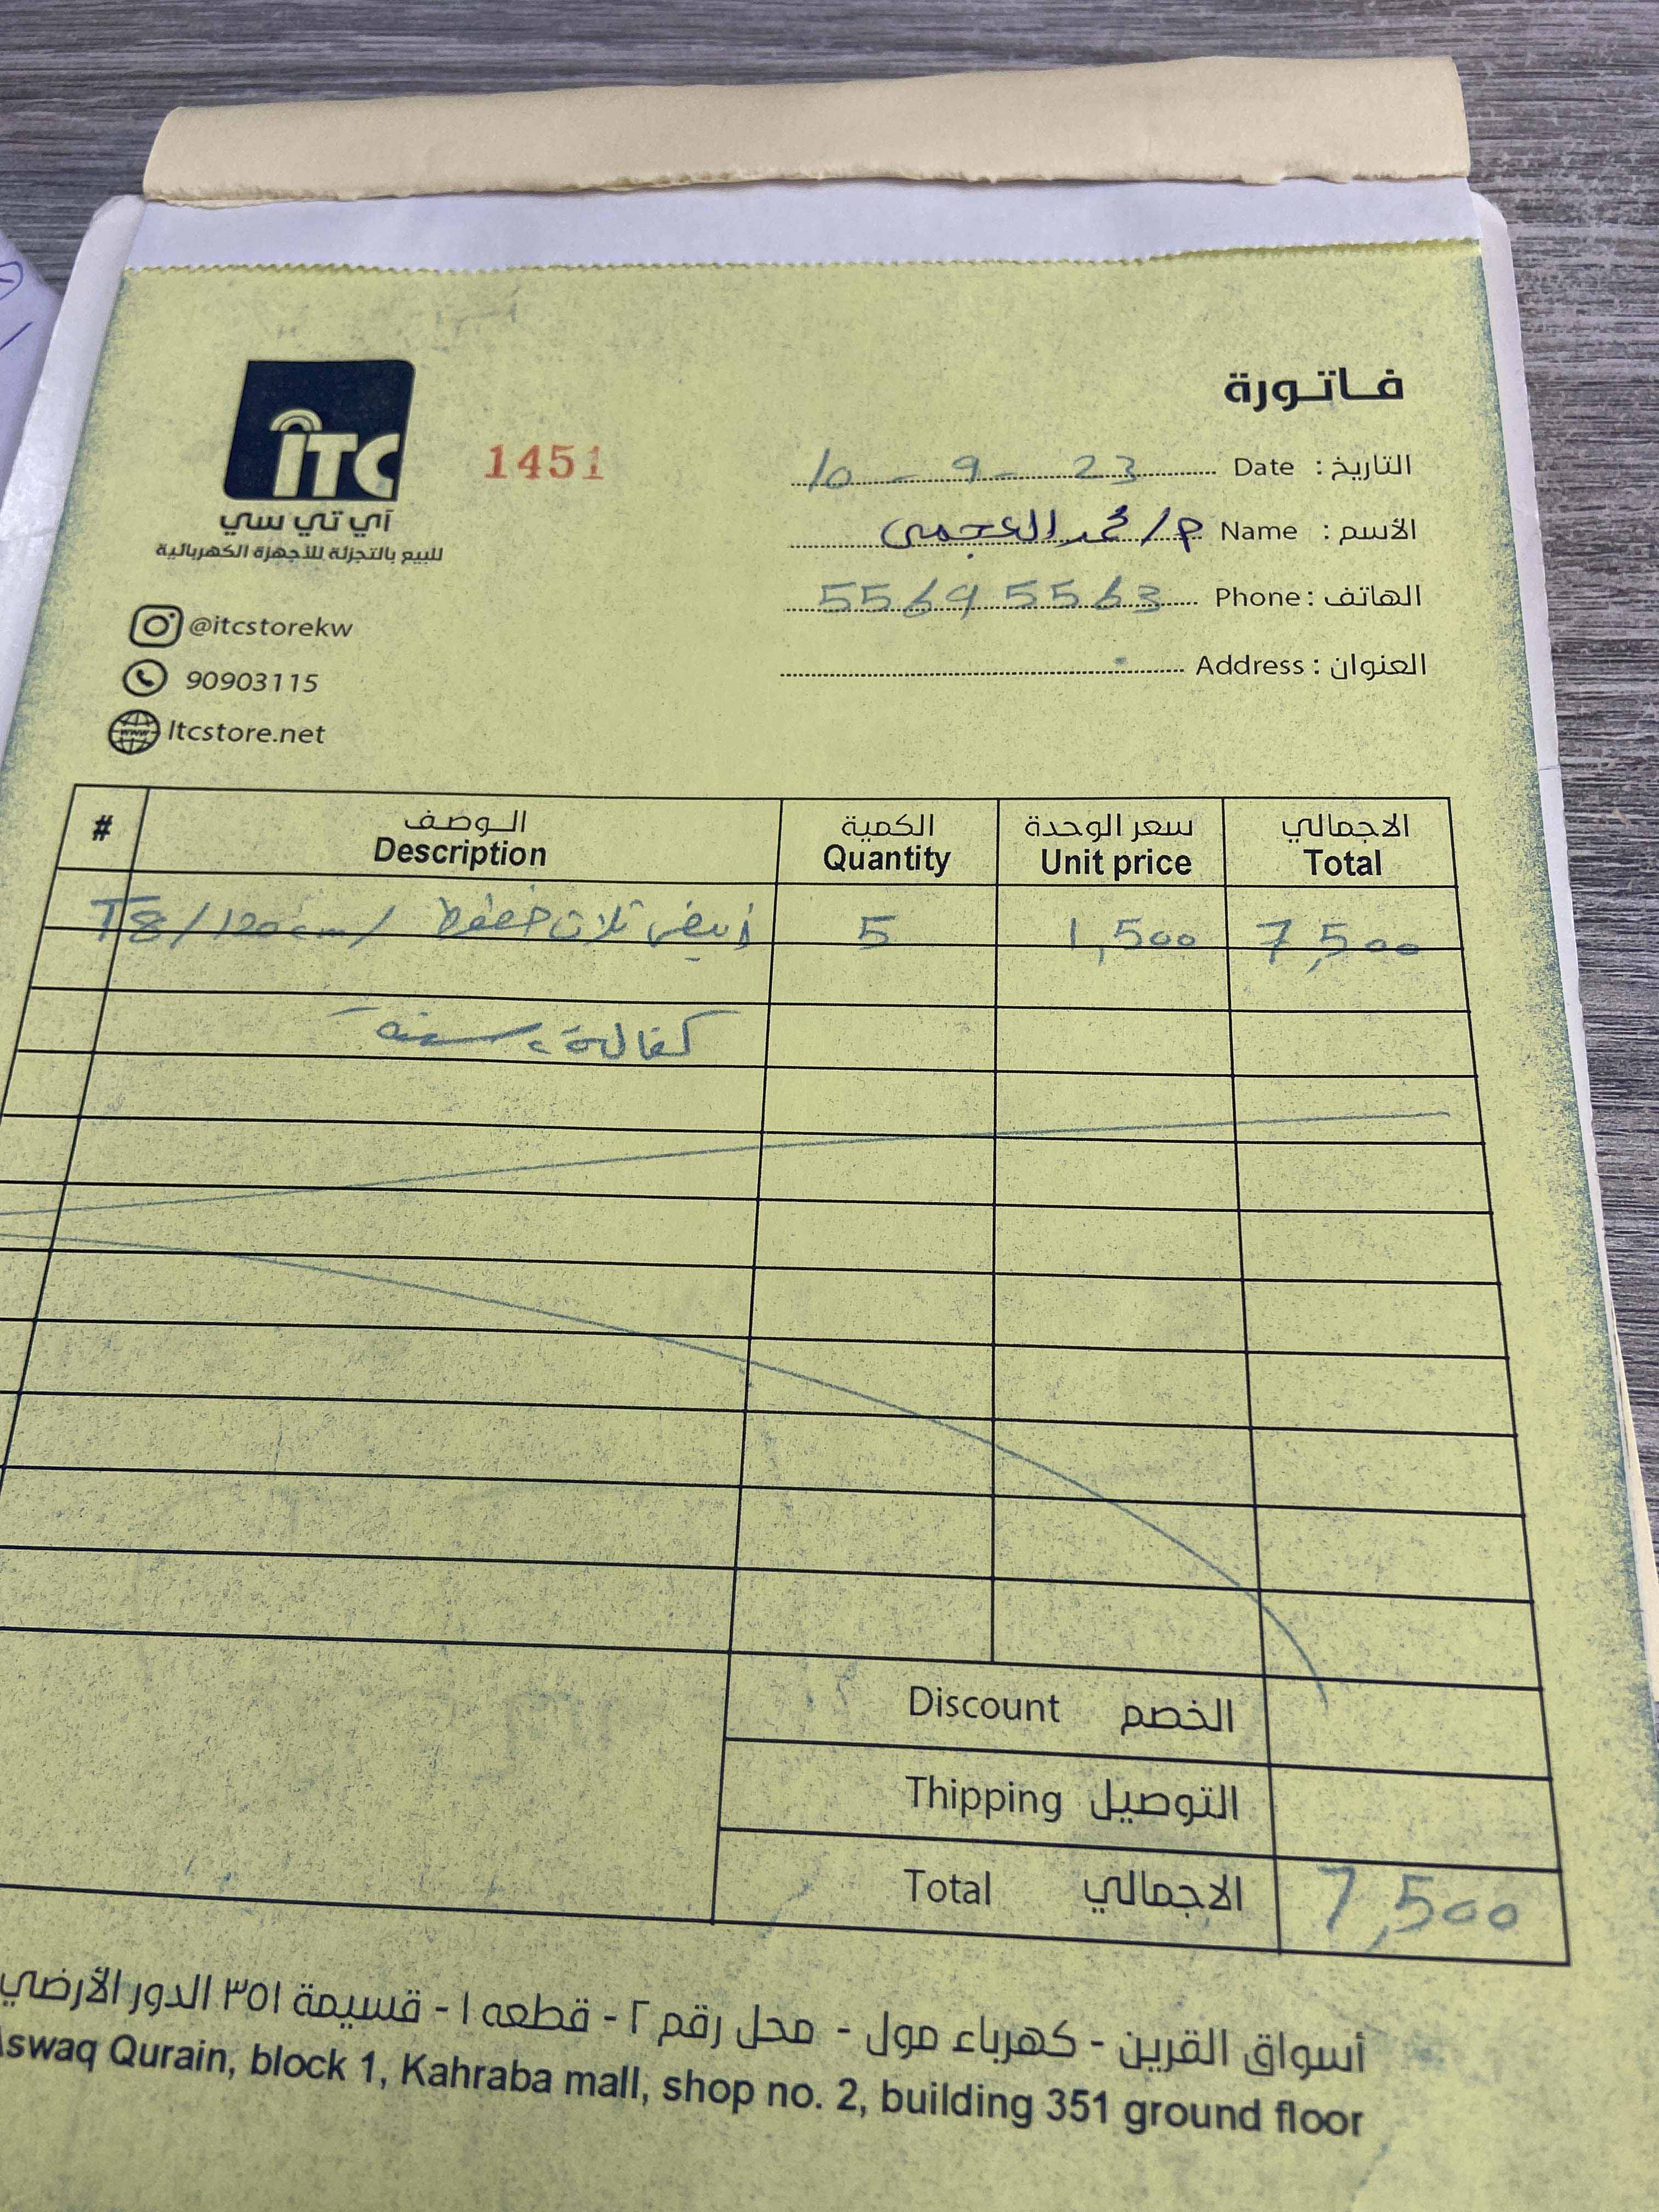 فاتورة
ITC
آي تي سي
للبيع بالتجزئة للأجهزة الكهربائية
1451
التاريخ : Date 10 - 9 - 23
الأسم : Name م/ محمد العجمي
الهاتف : Phone 55695563
العنوان : Address
@itcstorekw
90903115
Itcstore.net
# الـوصـف الكمية سعر الوحدة الاجمالي
Description Quantity Unit price Total
T8/120cm/ أبيض ثلاث خطوط 5 1,500 7,500
كفالة سنة
Discount الخصم
Thipping التوصيل
Total الاجمالي 7,500
أسواق القرين - كهرباء مول - محل رقم ٢ - قطعه ١ - قسيمة ٣٥١ الدور الأرضي
Aswaq Qurain, block 1, Kahraba mall, shop no. 2, building 351 ground floor